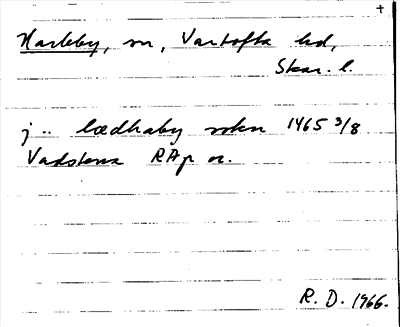 +
Harleby, sn, Vartofta hd,
Skar. l.
j .. lædhaby sokn 1465 3/8
Vadstena RAp or.
R. D. 1966.